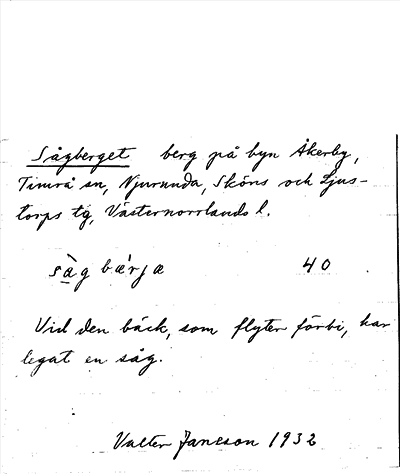 Sågberget berg på byn Åkerby,
Timrå sn, Njurunda, Sköns och Ljus-
torps tg, Västernorrlands l.
såg bærjæ 40
Vid den bäck, som flyter förbi, har
legat en såg.
Valter Jansson 1932